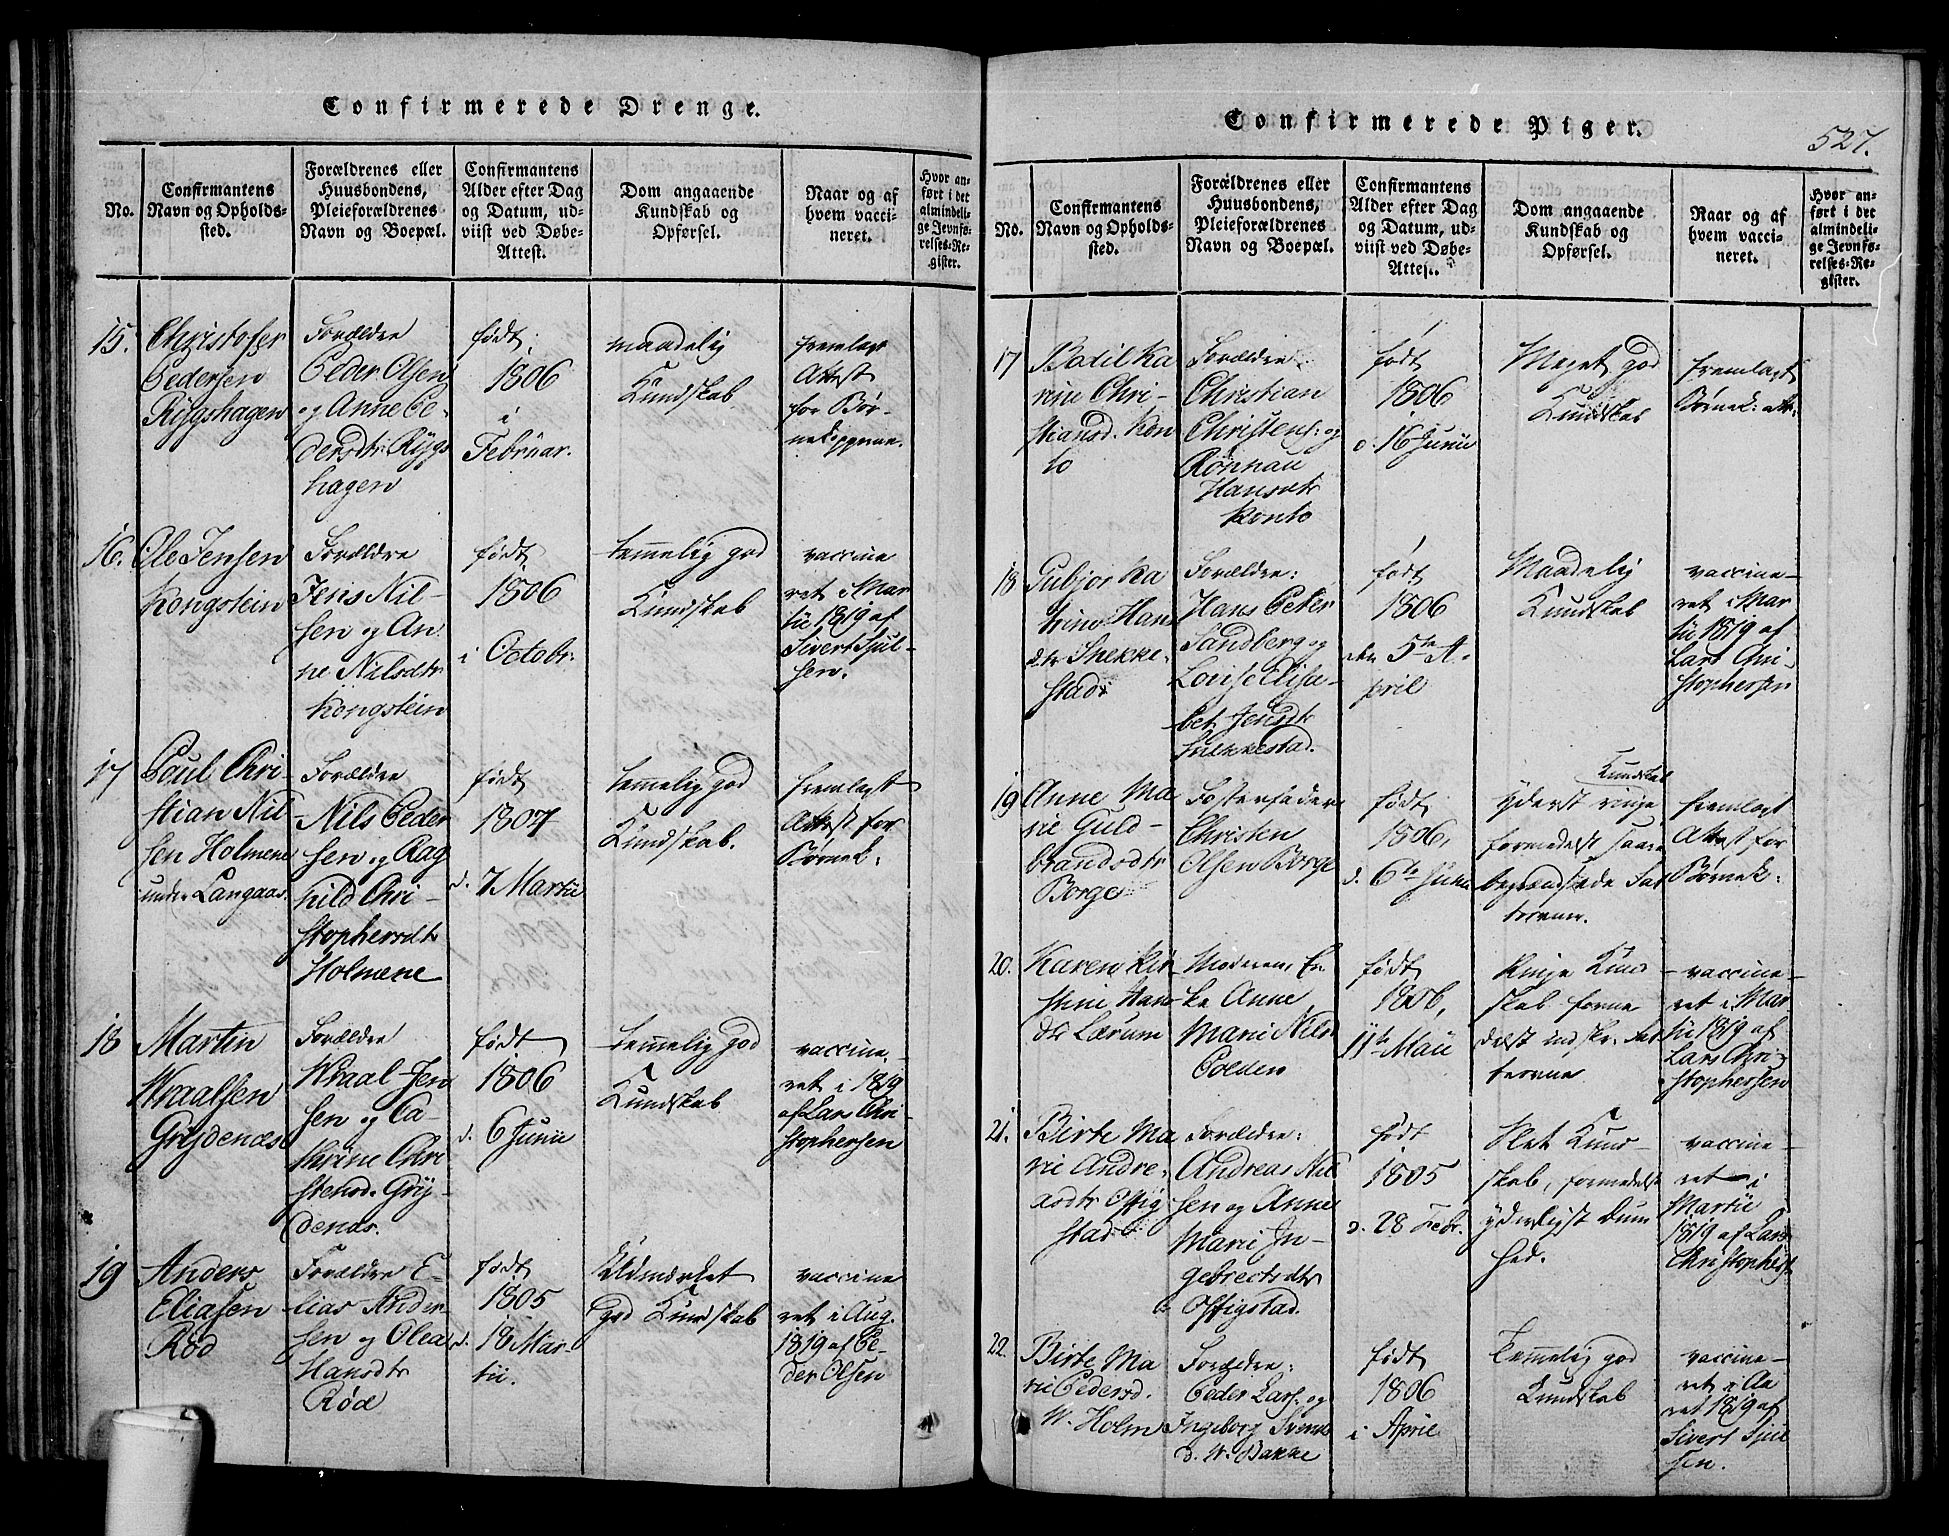 Confirmerede Drenge.
No.
Confirmantens
Navn og Opholds-
sted.
Forældrenes eller
Huusbondens,
Pleieforældrenes
Navn og Boepæl.
Confirmantens
Alder efter Dag
og Datum, ud-
viist ved Døbe-
Attest.
Dom angaaende
Kundskab og
Opførsel.
Naar og af
hvem vacci-
neret.
Hvor an-
ført i det
almindeli-
ge Jevnfø-
relses-Re-
gister.
15.
Christoffer
Pedersen
Ryggshagen
Forældre
Peder Olsen
og Anne Pe-
dersdtr Rygs
hagen
født
1806
i
Februar.
maadelig
Kundskab
fremlagt
Attest
for Bør-
nekopperne.
16.
Ole Jensen
Kongstein
Forældre
Jens Nil-
sen og An-
ne Nilsdtr
Kongstein
født
1806
i Octobr:
temmelig god
Kundskab
vaccine
ret i Mar
tii 1819 af
Sivert Sjul-
sen.
17
Poul Chri-
stian Nil
sen Holmene
under Langaas.
Forældre
Nils Peder
sen og Rag
hild Chri-
stophersdtr
Holmene
født
1807
d. 7 Martii
temmelig god
Kundskab.
fremlagt
Attest for
Børnek:
18
Martin
Wraalsen
Grydenæs
Forældre
Wraal Jen
sen og Ca-
thrine Chri
stensd. Gry-
denæs.
født
1806
d. 6 Junii
temmelig god
Kundskab
vaccine-
ret i 1819
af Lars Chri
stophersen
19
Anders
Eliasen
Rød
Forældre E-
lias Ander-
sen og Olea
Hansdtr
Rød
født
1805
d. 18 Mar-
tii.
Udmærket
god Kundskab
vaccine
ret i Aug.
1819 af Pe-
der Olsen
Confirmerede Piger.
527.
No.
Confirmantens
Navn og Opholds-
sted.
Forældrenes eller
Huusbondens,
Pleieforældrenes
Navn og Boepæl.
Confirmantens
Alder efter Dag
og Datum, ud-
viist ved Døbe-
Attest.
Dom angaaende
Kundskab og
Opførsel.
Naar og af
hvem vacci-
neret.
Hvor an-
ført i det
almindeli-
ge Jevnfø-
relses-Re-
gister.
17
Bodil Ka
rine Chri-
stiansd. Kon
to
Forældre
Christian
Christens: og
Rønnau
Hansdtr
Konto
født
1806
d. 16 Junii
Meget god
Kundskab
fremlagt
Børnek: att:
18
Gubjor Ka
trine Hans
dtr Snekke-
stad
Forældre:
Hans Peter
Sandberg og
Lovise Elisa-
bet Jensdtr
Snekkestad.
født
1806
den 5te A-
pril
Maadelig
Kundskab
vaccine-
ret i Mar-
tii 1819 af
Lars Chri-
stophersen
19
Anne Ma
rie Guld-
brandsdtr
Borge
Fosterfader
Christen
Olsen Borge
født
1806,
d. 6te Junii
Kundskab
yderst ringe
formedelst saare
begrændsede Fat
teevner.
fremlagt
Attest for
Børnek:
20.
Karen Kir
stine Hans
dtr Lærum
Moderen, En
ke Anne
Marie Nilsd
Polden
født
1806,
11te Maii
Ringe Kund
skab forme
delst indskr: Fat
teevne
vaccine-
ret i Mar
tii 1819 af
Lars Chri-
stophersen
21.
Birte Ma
rie Andre-
asdtr Offig
stad
Forældre:
Andreas Nil
sen og Anne
Marie In-
gebrectsdtr
Offigstad.
født
1805
d. 28 Febr.
Slet Kund
skab, formedelst
yderligst Dum
hed.
vaccine-
ret i
Martii
1819 af Lars
Christophers
22.
Birte Ma
rie Pedersd.
W. Holm
Forældre:
Peder Lars: og
Ingeborg Svends
d. W. Bakke
født
1806
i April
Temmelig god
Kundskab
vaccine-
ret i Aa
ret 1819 af
Sivert Sjul
sen.